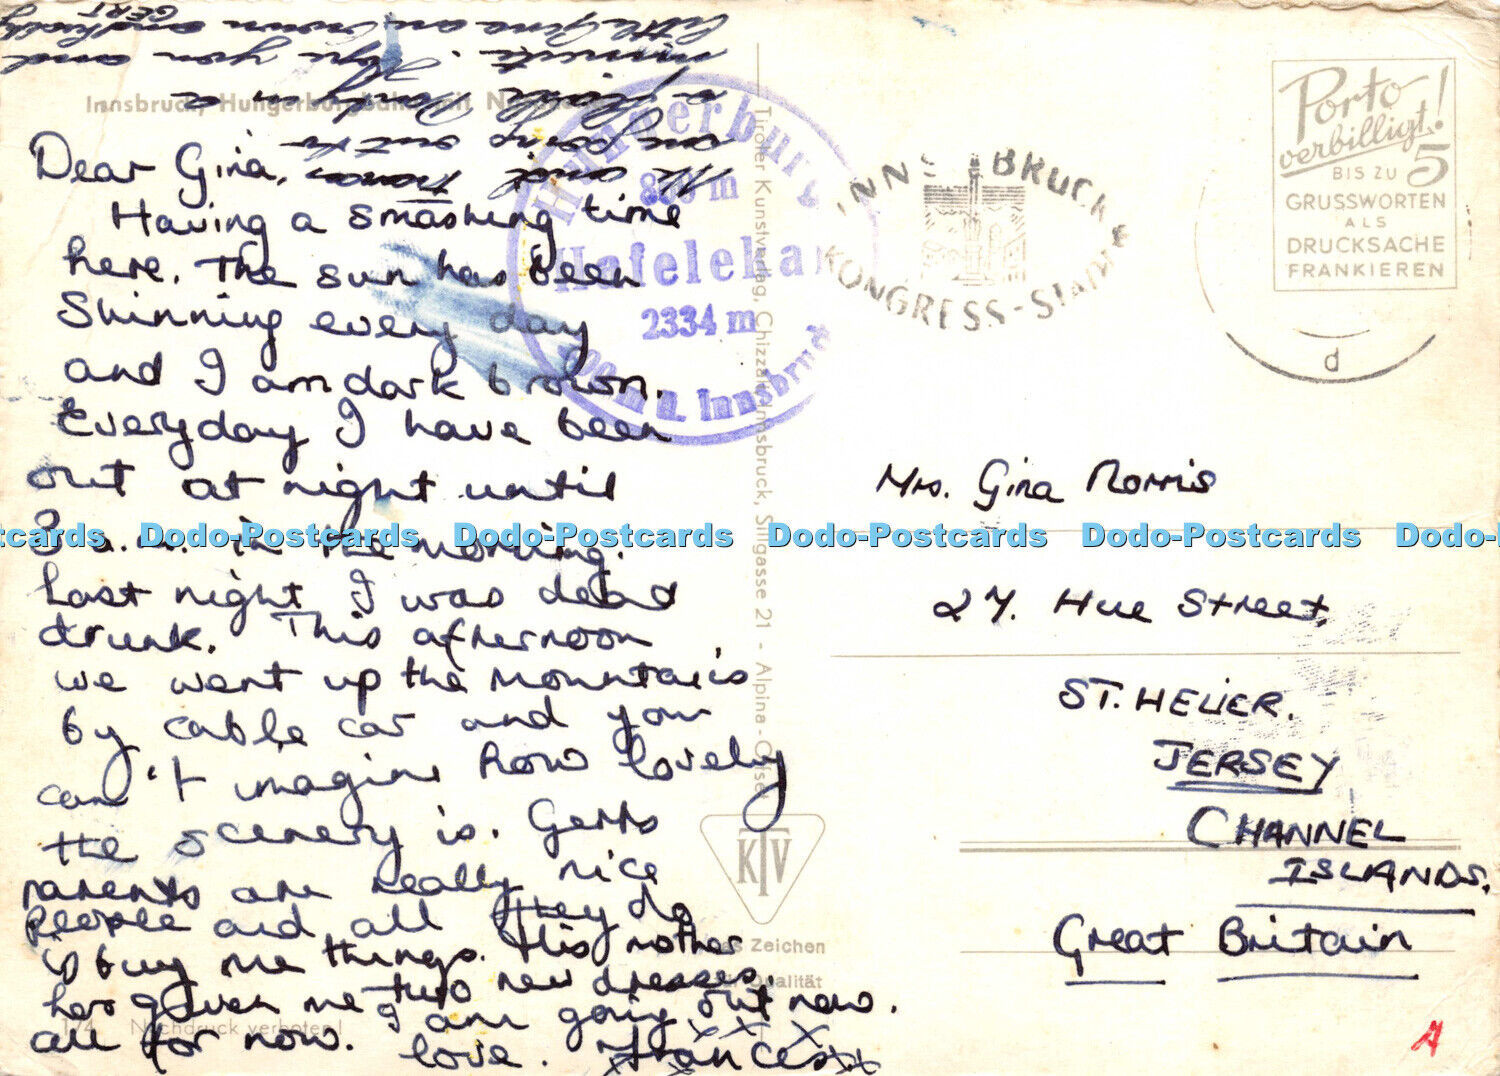 Dear Gina,
Having a smashing time
here. The sun has been
Shinning every day
and I am dark brown.
Everyday I have been
out at night until
3 a.m. in the morning.
Last night I was dead
drunk. This afternoon
we went up the mountains
by cable car and you
can't imagine how lovely
the scenery is. Gerts
parents are really nice
people and all they do
is buy me things. His mother
has given me two new dresses.
I am going out now.
all for now. love. Frances
x x x
Me and Frances
are going out in
a
minute. Hope you and
little Gina are
GERT
Mrs. Gina Norris
27. Hue Street.
ST. HELIER.
JERSEY
CHANNEL
ISLANDS.
Great Britain
Innsbruck, Hungerburgbahn mit
Hungerburg
Hafelekar
2334 m
Innsbruck
INNSBRUCK
KONGRESS-
Porto
verbilligt!
BIS ZU 5
GRUSSWORTEN
ALS
DRUCKSACHE
FRANKIEREN
d
Tiroler Kunstverlag, Chizzali, Innsbruck, Sillgasse 21 - Alpina-Offset
KTV
Zeichen
Qualität
174 Nachdruck verboten!
A
Dodo-Postcards Dodo-Postcards Dodo-Postcards Dodo-Postcards